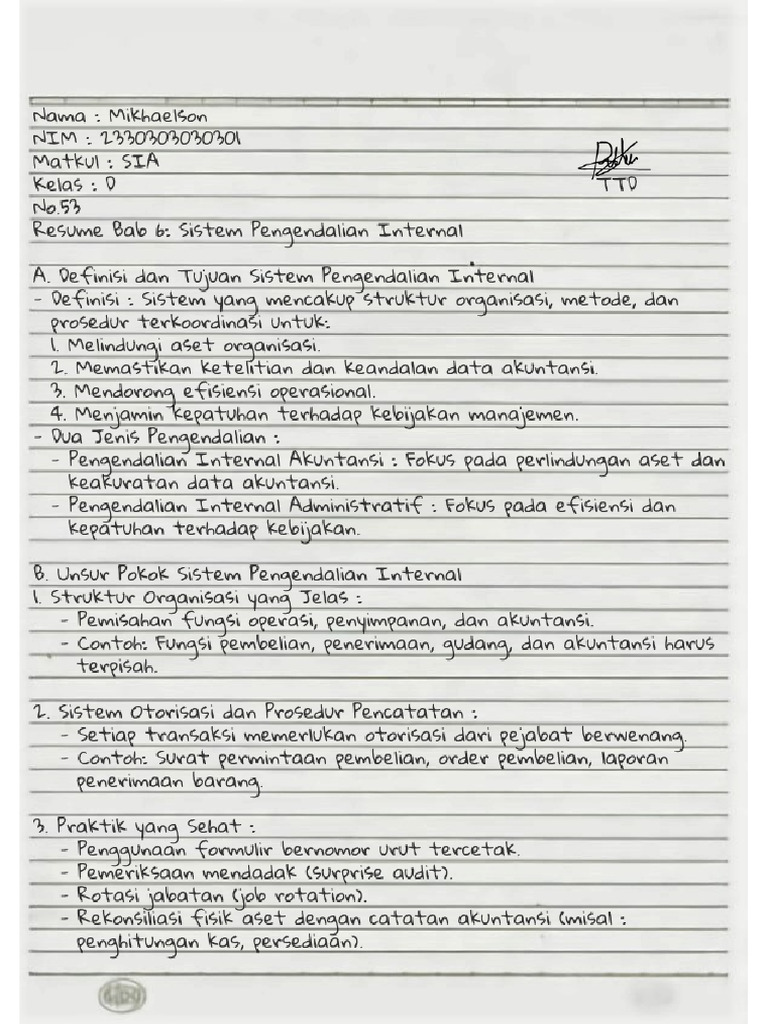 Nama : Mikhaelson
NIM : 2330303030301
Matkul : SIA
Kelas : D
TTD
No.53
Resume Bab 6: Sistem Pengendalian Internal
A. Definisi dan Tujuan Sistem Pengendalian Internal
- Definisi : Sistem yang mencakup struktur organisasi, metode, dan
prosedur terkoordinasi untuk:
1. Melindungi aset organisasi.
2. Memastikan ketelitian dan keandalan data akuntansi.
3. Mendorong efisiensi operasional.
4. Menjamin kepatuhan terhadap kebijakan manajemen.
- Dua Jenis Pengendalian :
- Pengendalian Internal Akuntansi : Fokus pada perlindungan aset dan
keakuratan data akuntansi.
- Pengendalian Internal Administratif : Fokus pada efisiensi dan
kepatuhan terhadap kebijakan.
B. Unsur Pokok Sistem Pengendalian Internal
1. Struktur Organisasi yang Jelas :
- Pemisahan fungsi operasi, penyimpanan, dan akuntansi.
- Contoh: Fungsi pembelian, penerimaan, gudang, dan akuntansi harus
terpisah.
2. Sistem Otorisasi dan Prosedur Pencatatan :
- Setiap transaksi memerlukan otorisasi dari pejabat berwenang.
- Contoh: Surat permintaan pembelian, order pembelian, laporan
penerimaan barang.
3. Praktik yang Sehat :
- Penggunaan formulir bernomor urut tercetak.
- Pemeriksaan mendadak (surprise audit).
- Rotasi jabatan (job rotation).
- Rekonsiliasi fisik aset dengan catatan akuntansi (misal :
penghitungan kas, persediaan).